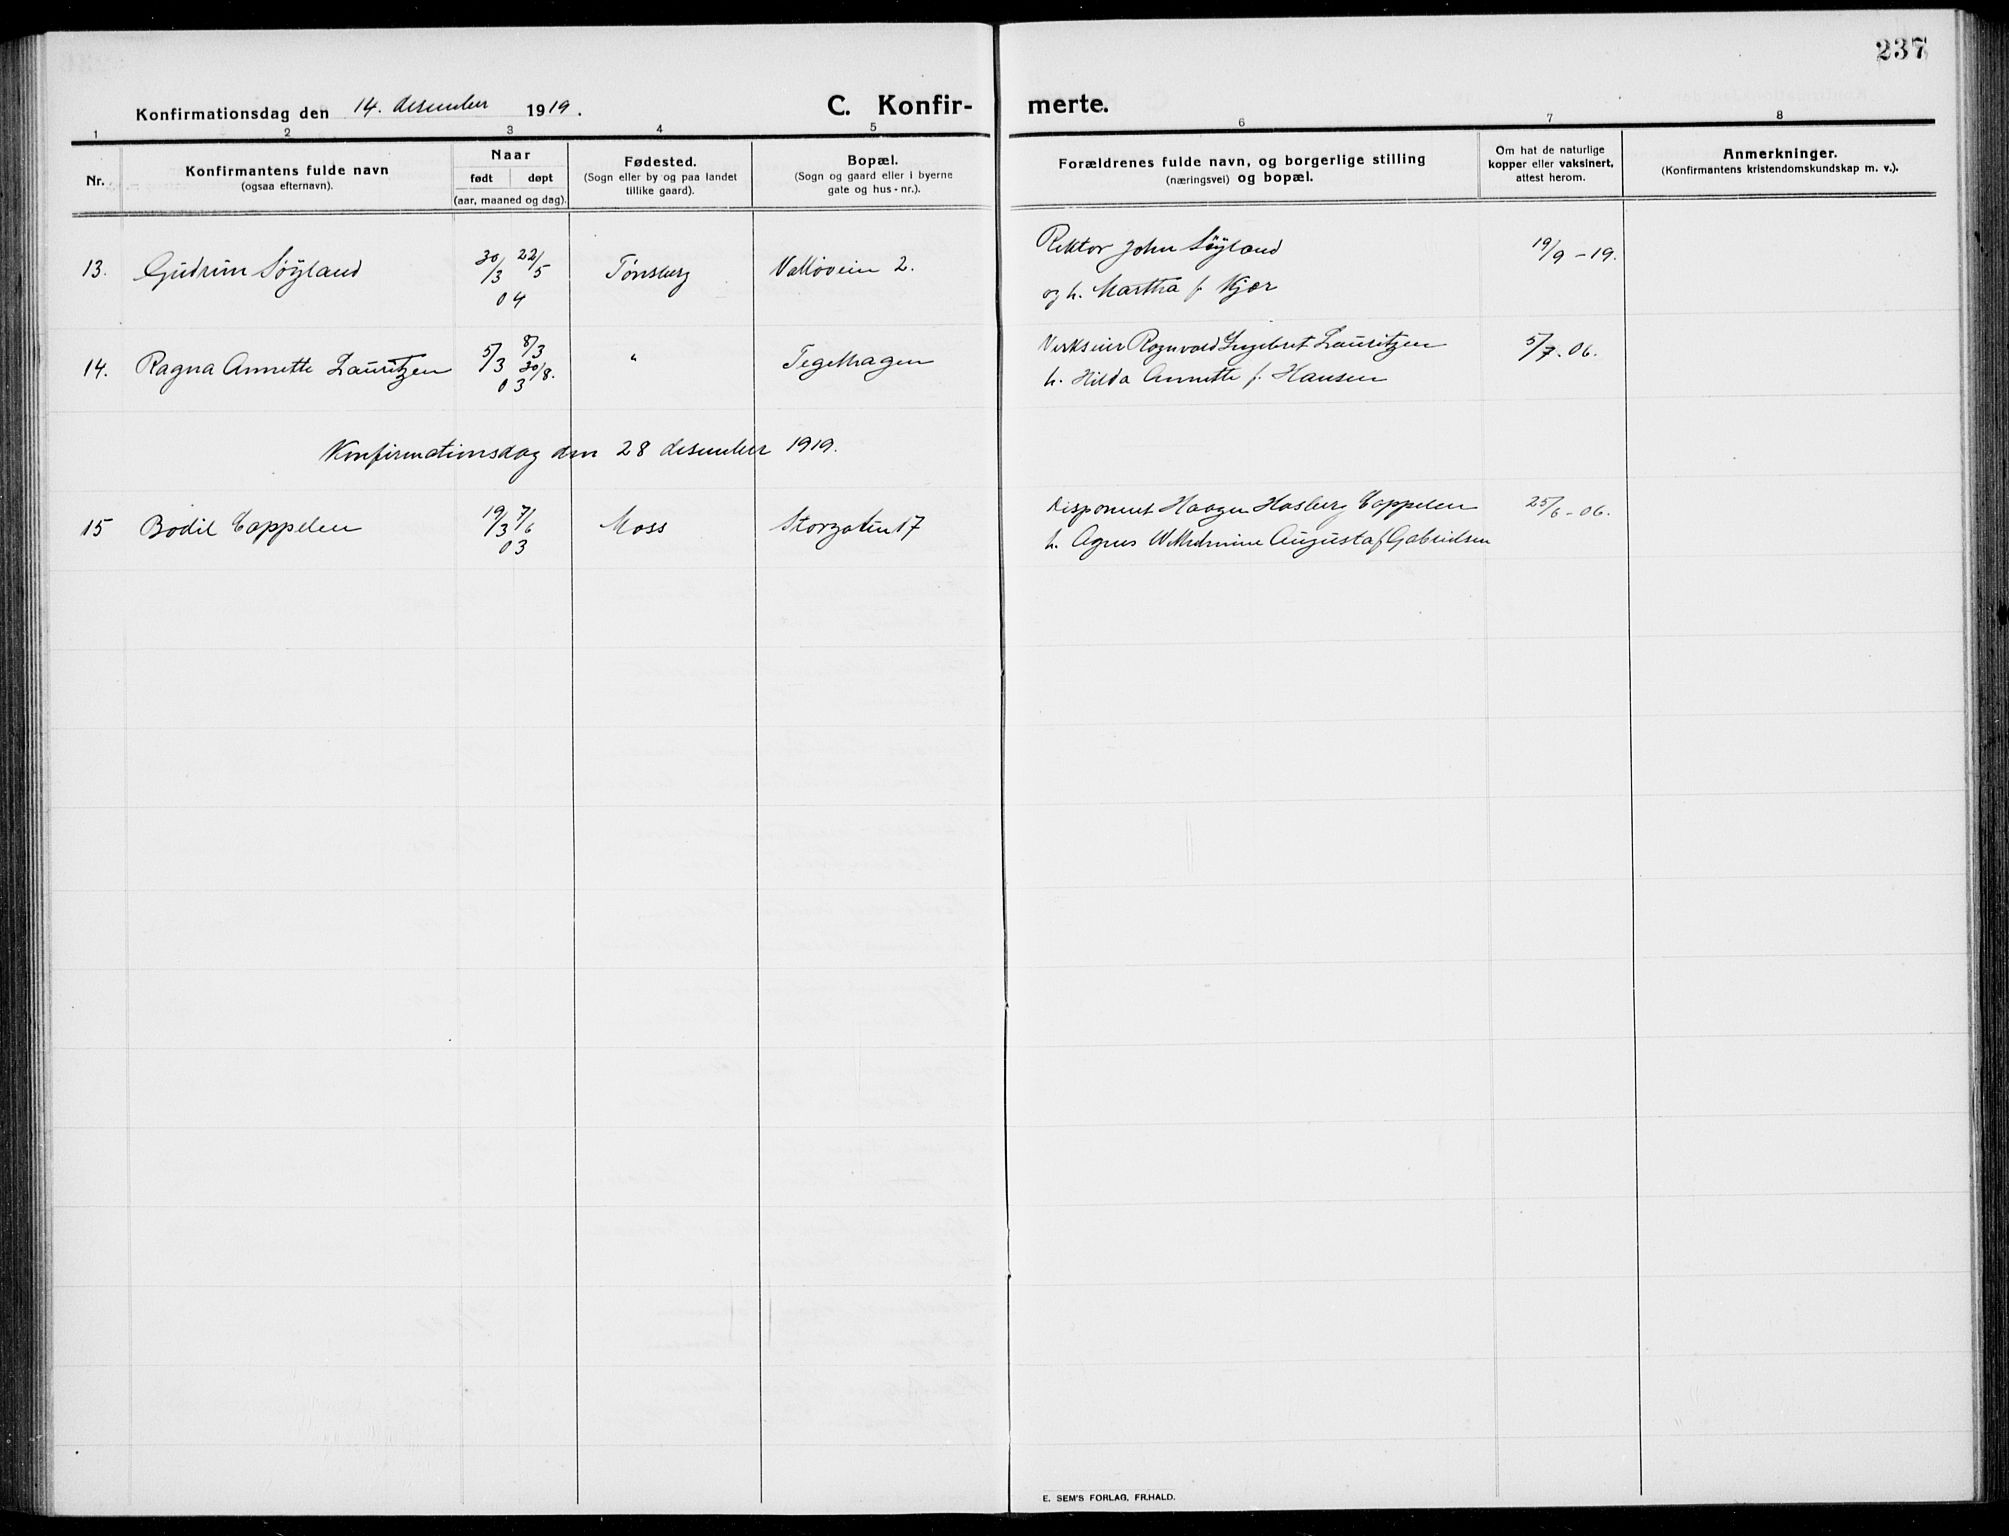 237
Konfirmationsdag den 14. desember 1919.
C. Konfir- merte.
1 2 3 4 5 6 7 8
Nr.
Konfirmantens fulde navn
(ogsaa efternavn).
Naar
født døpt
(aar, maaned og dag).
Fødested.
(Sogn eller by og paa landet
tillike gaard).
Bopæl.
(Sogn og gaard eller i byerne
gate og hus-nr.).
Forældrenes fulde navn, og borgerlige stilling
(næringsvei) og bopæl.
Om hat de naturlige
kopper eller vaksinert,
attest herom.
Anmerkninger.
(Konfirmantens kristendomskundskap m. v.).
13. Gudrun Søyland 30/3 22/5 Tønsberg Valløveien 2. Rektor John Søyland 19/9-19.
04 og h. Martha f. Kjær
14. Ragna Annette Lauritzen 5/3 8/3 " Teglhagen Verkseier Rognvald Ingebret Lauritzen 5/7.06.
03 30/8. h. Hilda Annette f. Hansen
Konfirmationsdag den 28 desember 1919.
15 Bodil Cappelen 19/3 7/6 Moss Storgaten 17 Disponent Haagen Cappelen 25/6-06.
03 h. Agnes Wilhelmine Augusta f Gabrielsen
E. SEM'S FORLAG, FR.HALD.